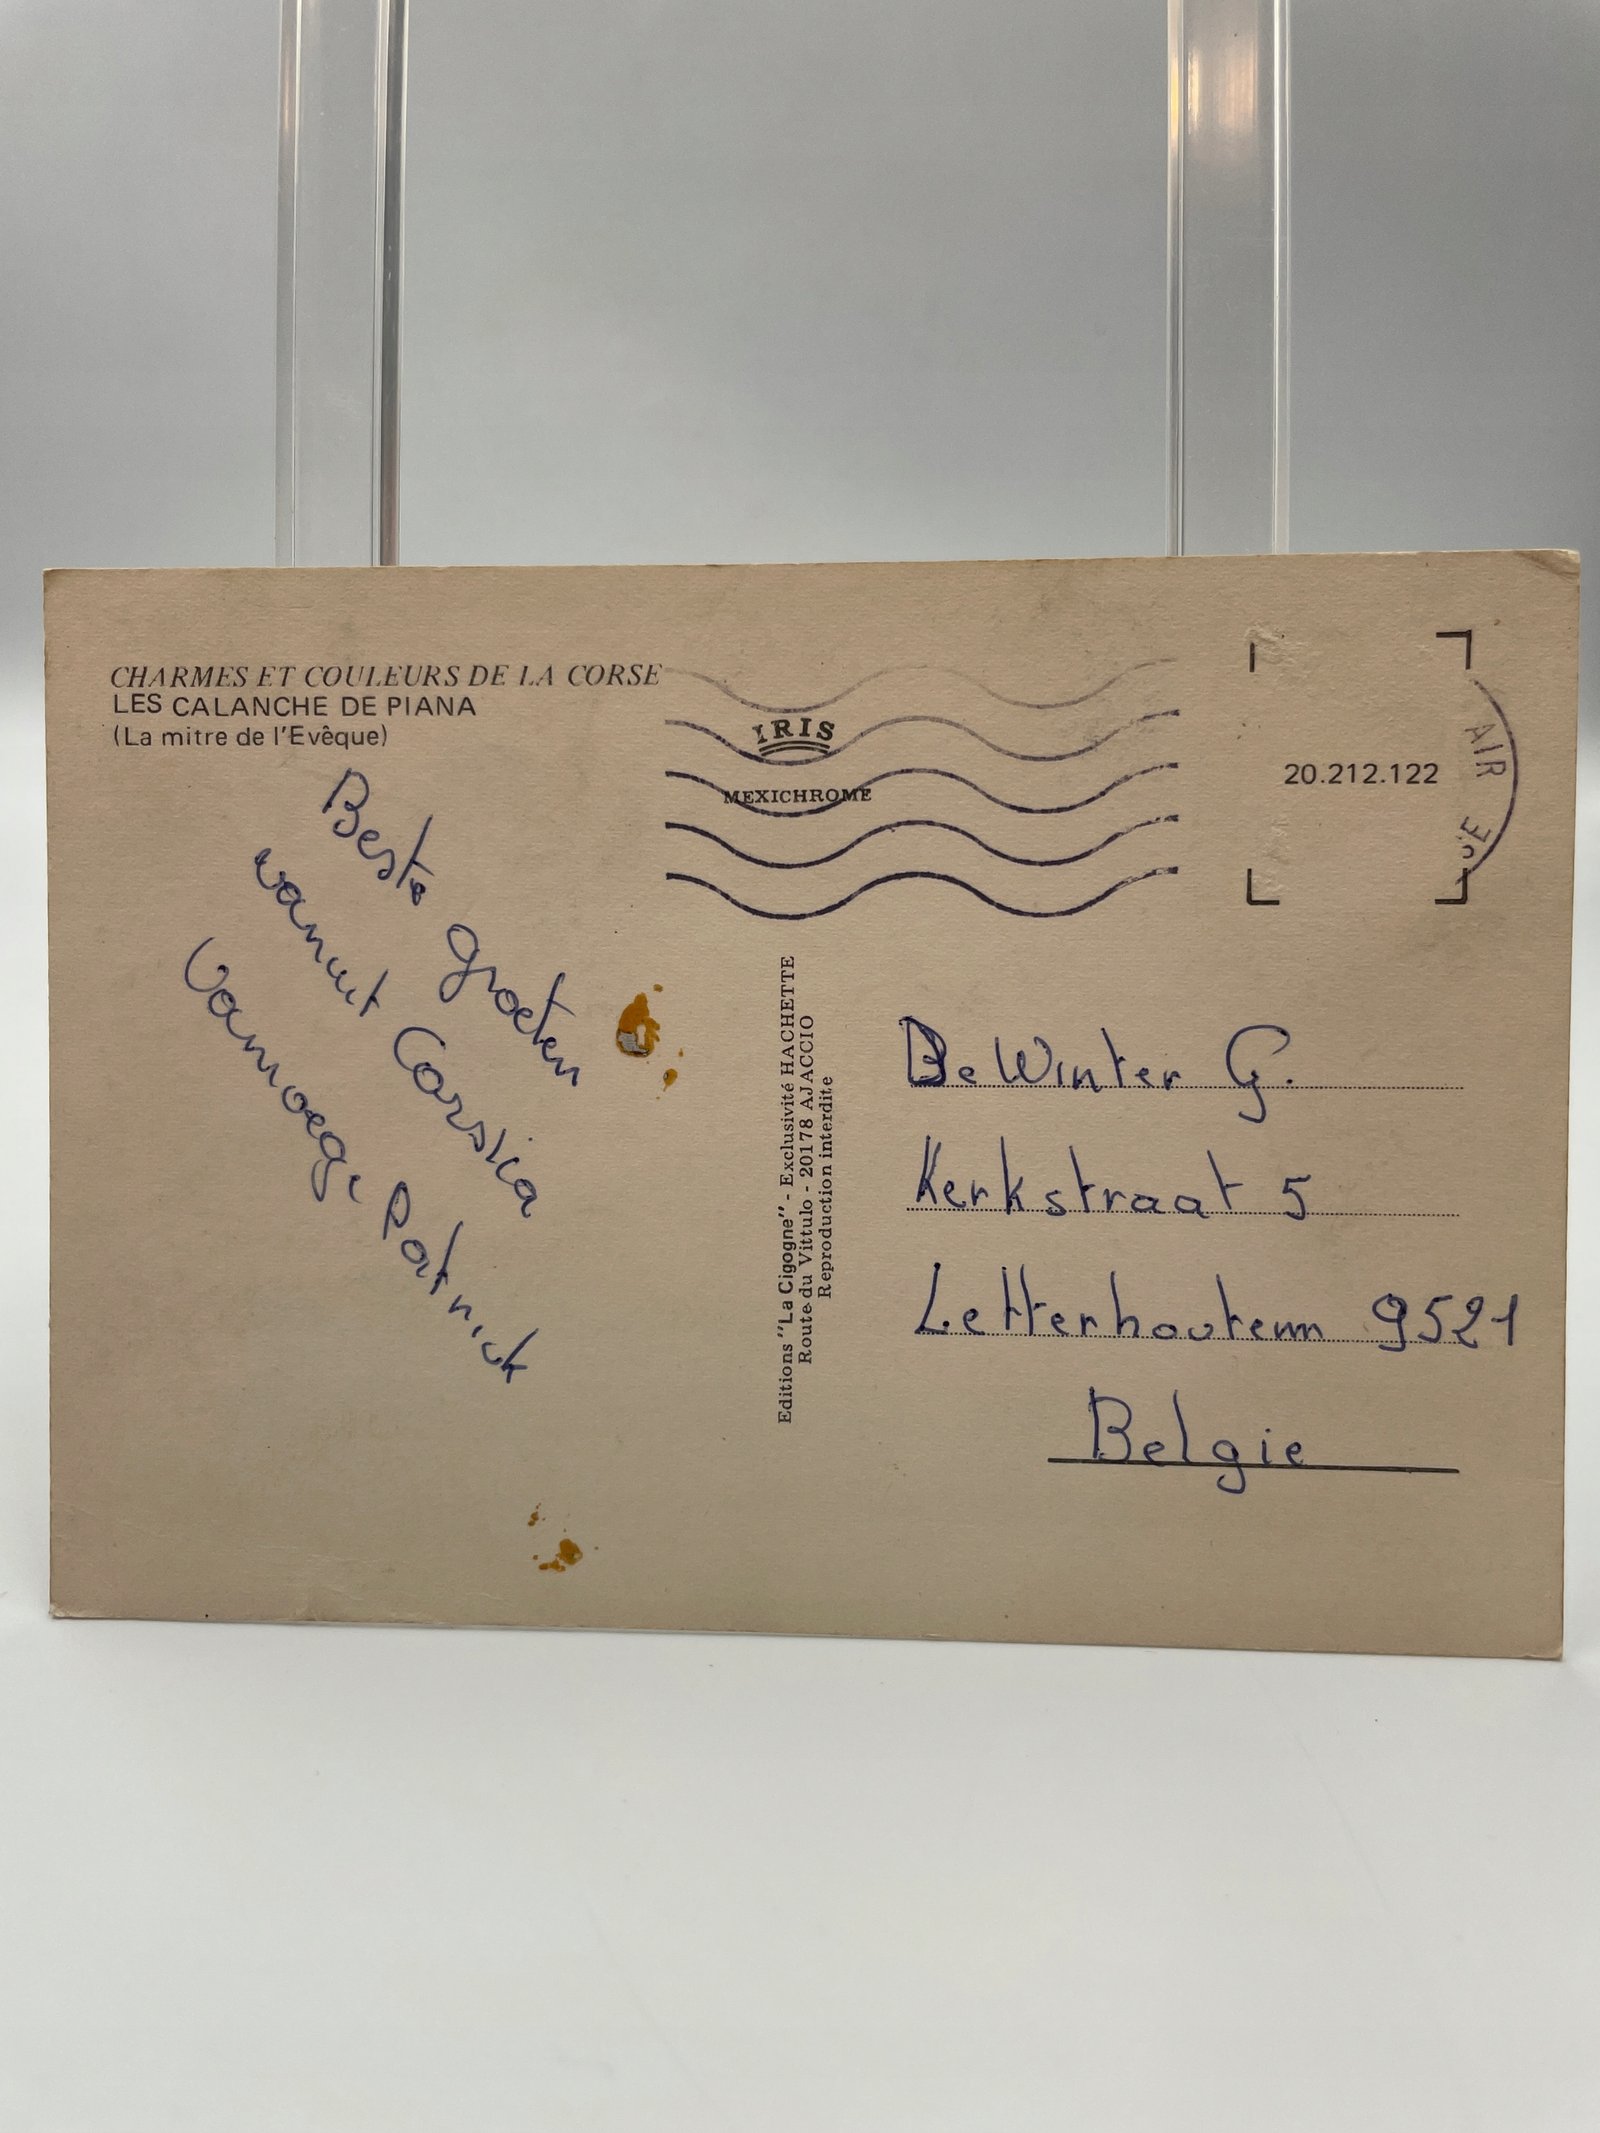 CHARMES ET COULEURS DE LA CORSE
LES CALANCHE DE PIANA
(La mitre de l'Evêque)
IRIS
MEXICHROME
20.212.122
AIR
Beste groeten
vanuit Corsica
Vanwege Patrick
Editions "La Cigogne" - Exclusivité HACHETTE
Route du Vittulo - 20178 AJACCIO
Reproduction interdite
De Winter G.
Kerkstraat 5
Letterhoutem 9521
Belgie